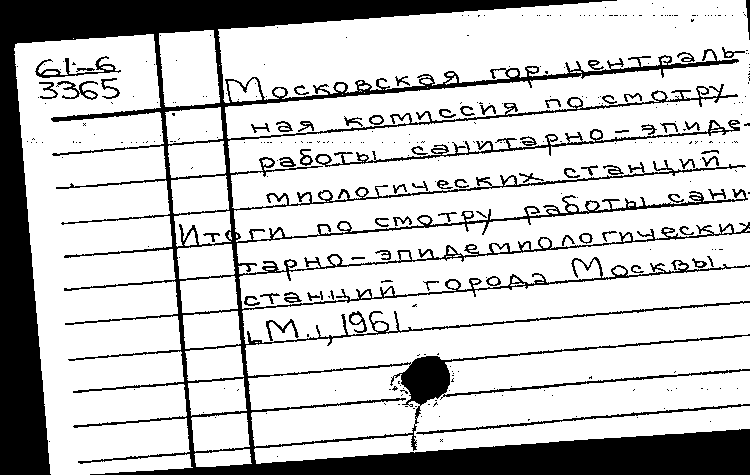 61-6
3365
Московская гор. централь-
ная комиссия по смотру
работы санитарно-эпиде-
миологических станций.
Итоги по смотру работы сани-
тарно-эпидемиологических
станций города Москвы.
М., 1961.